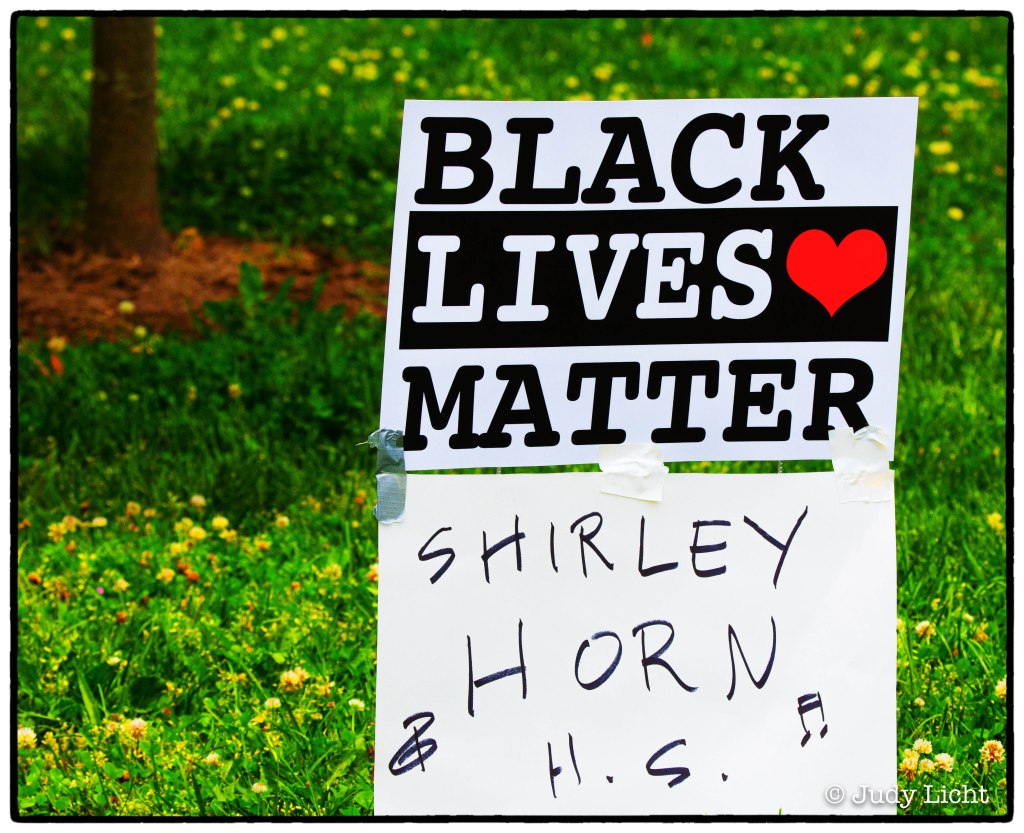 BLACK
LIVES
MATTER
SHIRLEY
HORN
H.S.
© Judy Licht